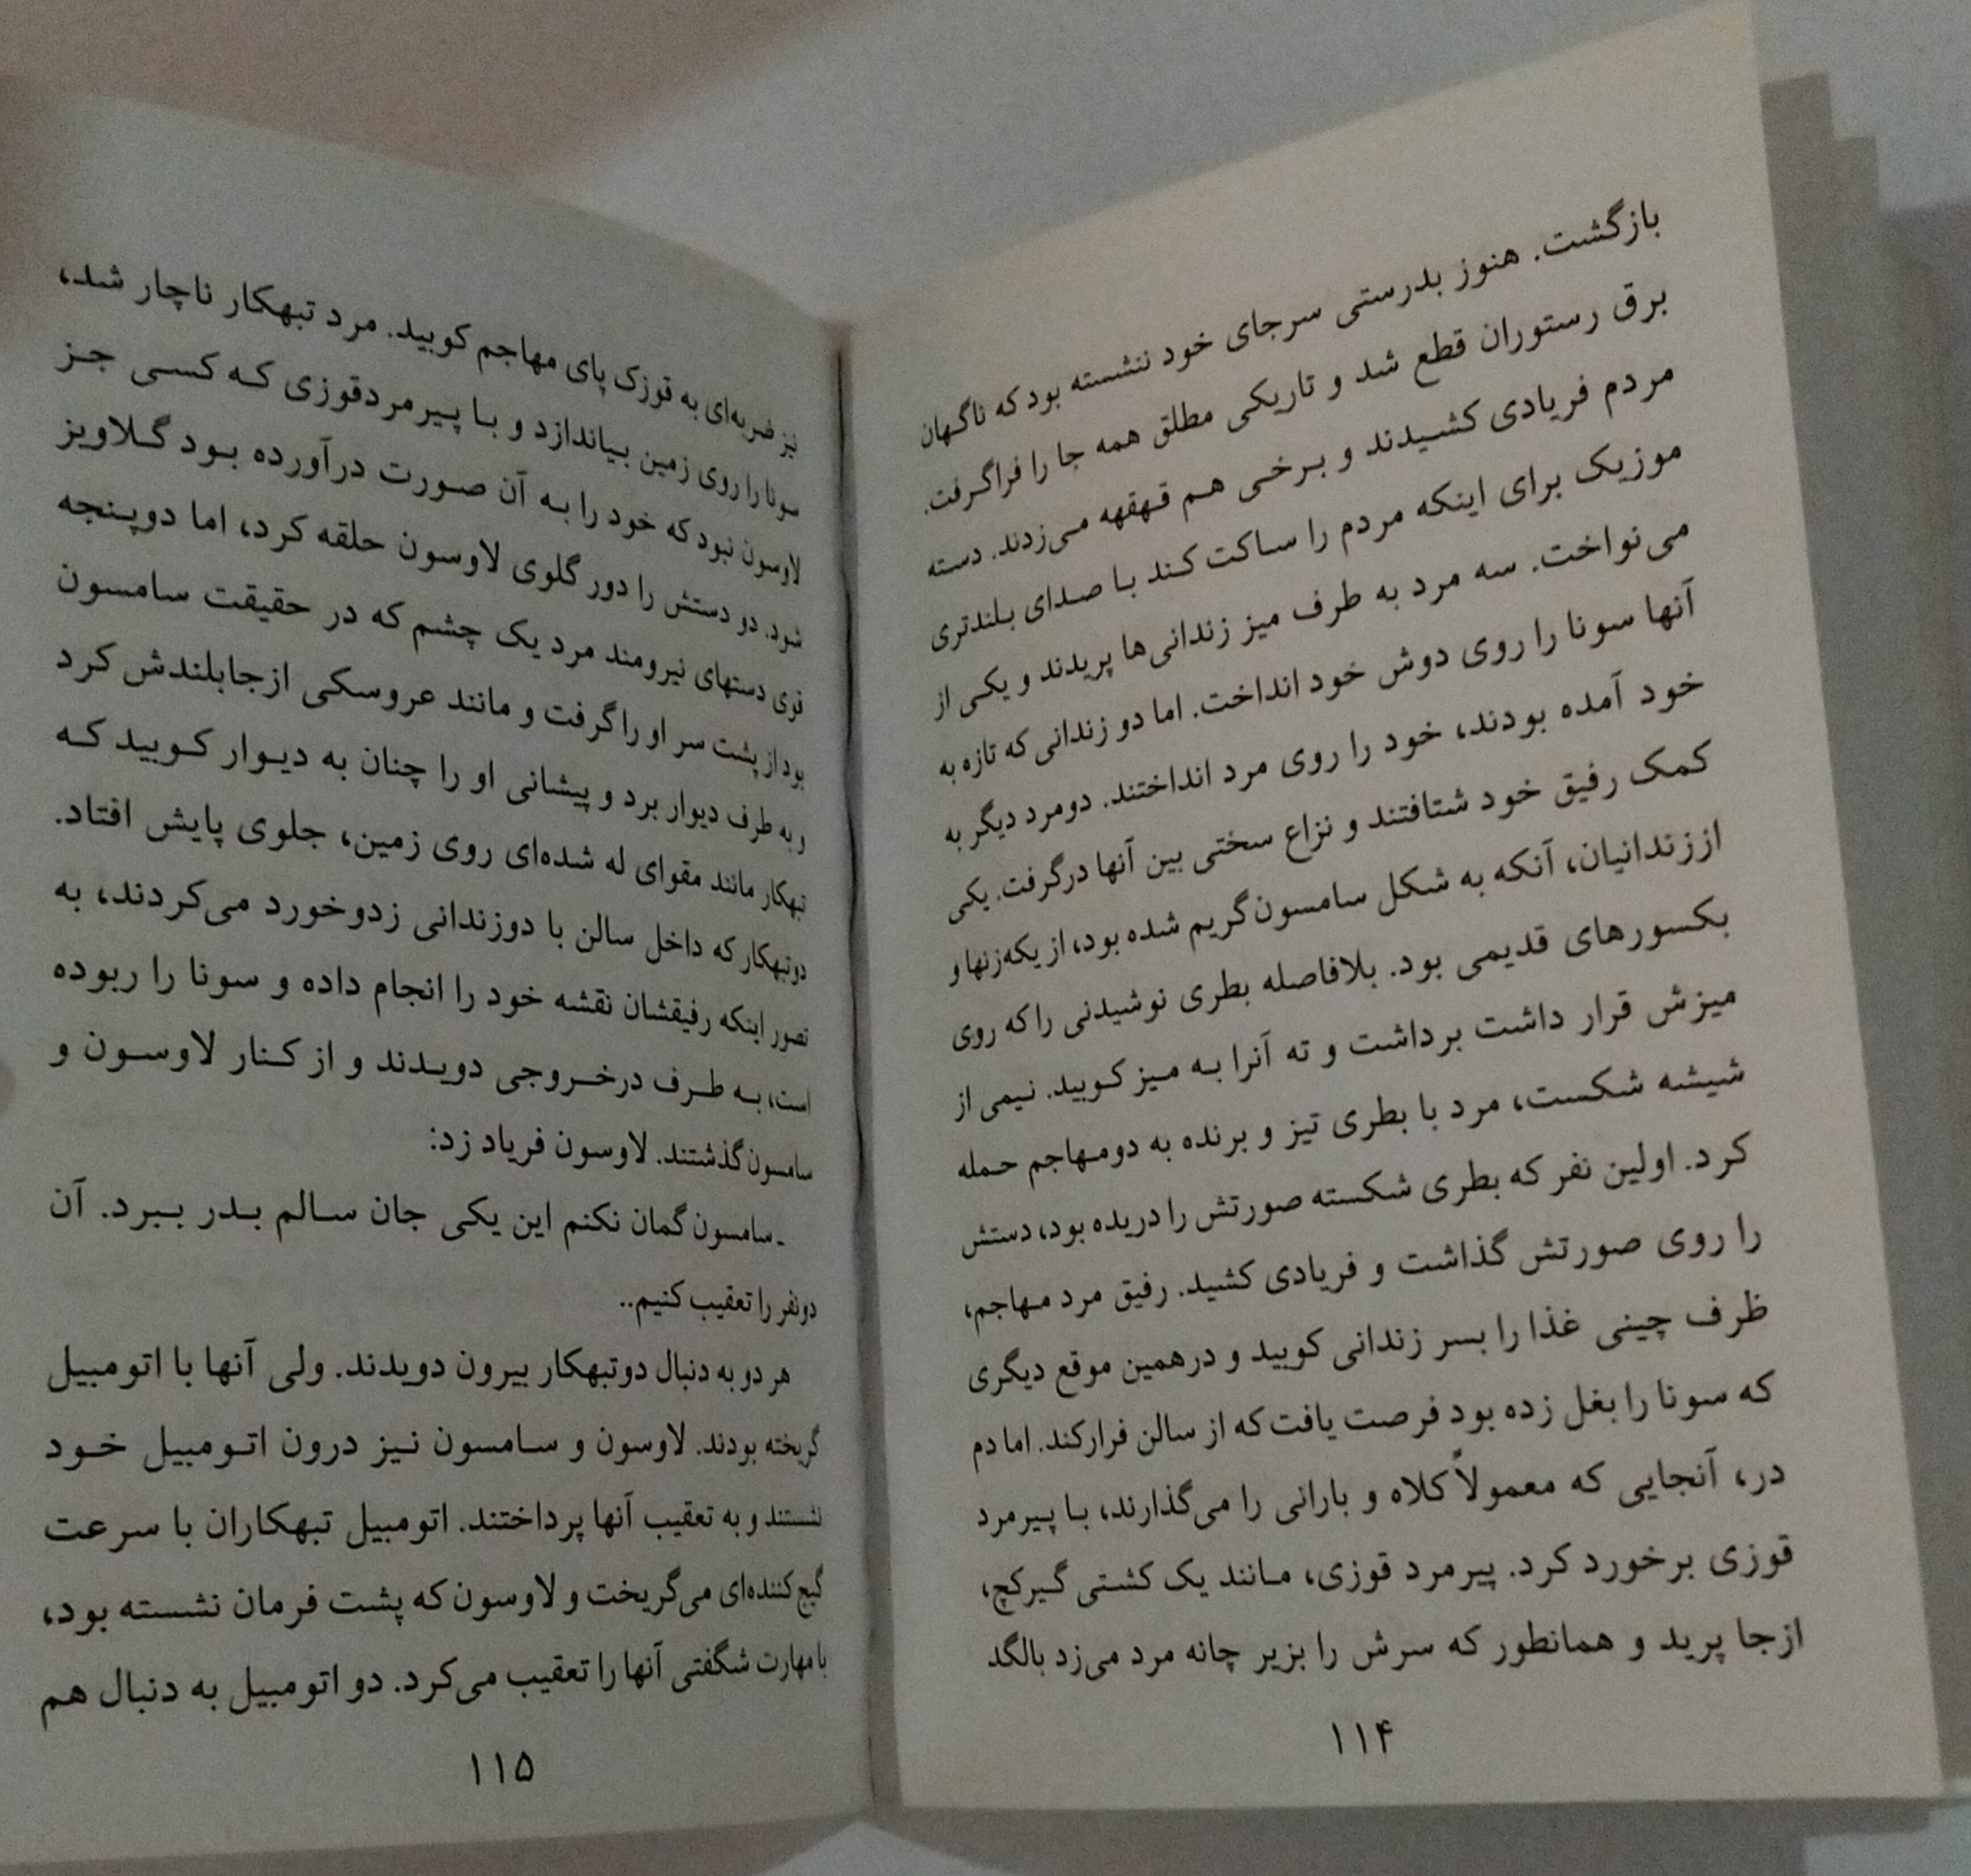 بازگشت. هنوز بدرستی سرجای خود ننشسته بود که ناگهان
برق رستوران قطع شد و تاریکی مطلق همه جا را فراگرفت.
مردم فریادی کشیدند و برخی هم قهقهه می‌زدند. دسته
موزیک برای اینکه مردم را ساکت کند با صدای بلندتری
می‌نواخت. سه مرد به طرف میز زندانی‌ها پریدند و یکی از
آنها سونا را روی دوش خود انداخت. اما دو زندانی که تازه به
خود آمده بودند، خود را روی مرد انداختند. دومرد دیگر به
کمک رفیق خود شتافتند و نزاع سختی بین آنها درگرفت. یکی
اززندانیان، آنکه به شکل سامسون گریم شده بود، از یکه‌زنها و
بکسورهای قدیمی بود. بلافاصله بطری نوشیدنی را که روی
میزش قرار داشت برداشت و ته آنرا به میز کوبید. نیمی از
شیشه شکست، مرد با بطری تیز و برنده به دومهاجم حمله
کرد. اولین نفر که بطری شکسته صورتش را دریده بود، دستش
را روی صورتش گذاشت و فریادی کشید. رفیق مرد مهاجم،
ظرف چینی غذا را بسر زندانی کوبید و درهمین موقع دیگری
که سونا را بغل زده بود فرصت یافت که از سالن فرارکند. اما دم
در، آنجایی که معمولاً کلاه و بارانی را می‌گذارند، با پیرمرد
قوزی برخورد کرد. پیرمرد قوزی، مانند یک کشتی گیرکچ،
ازجا پرید و همانطور که سرش را بزیر چانه مرد می‌زد بالگد
۱۱۴
نیز ضربه‌ای به قوزک پای مهاجم کوبید. مرد تبهکار ناچار شد،
سونا را روی زمین بیاندازد و با پیرمردقوزی که کسی جز
لاوسون نبود که خود را به آن صورت درآورده بود گلاویز
شود. دو دستش را دور گلوی لاوسون حلقه کرد، اما دوپنجه
قوی دستهای نیرومند مرد یک چشم که در حقیقت سامسون
بود از پشت سر او را گرفت و مانند عروسکی ازجابلندش کرد
و به طرف دیوار برد و پیشانی او را چنان به دیوار کوبید که
تبهکار مانند مقوای له شده‌ای روی زمین، جلوی پایش افتاد.
دوتبهکار که داخل سالن با دوزندانی زدوخورد می‌کردند، به
تصور اینکه رفیقشان نقشه خود را انجام داده و سونا را ربوده
است، به طرف درخروجی دویدند و از کنار لاوسون و
سامسون گذشتند. لاوسون فریاد زد:
ـ سامسون گمان نکنم این یکی جان سالم بدر ببرد. آن
دونفر را تعقیب کنیم..
هر دو به دنبال دوتبهکار بیرون دویدند. ولی آنها با اتومبیل
گریخته بودند. لاوسون و سامسون نیز درون اتومبیل خود
نشستند و به تعقیب آنها پرداختند. اتومبیل تبهکاران با سرعت
گیج‌کننده‌ای می‌گریخت و لاوسون که پشت فرمان نشسته بود،
با مهارت شگفتی آنها را تعقیب می‌کرد. دو اتومبیل به دنبال هم
۱۱۵